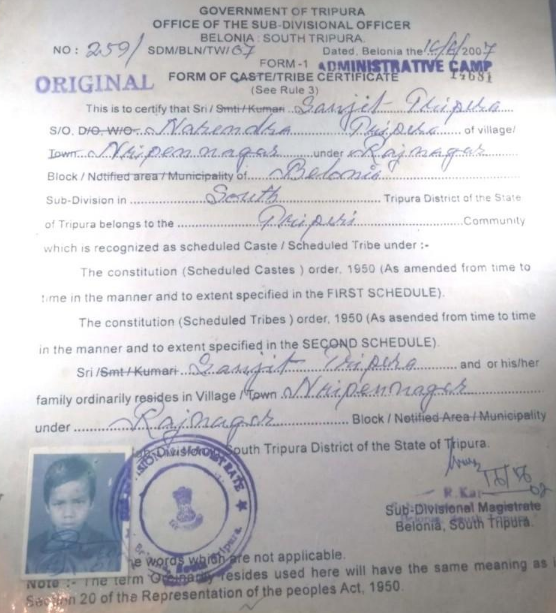 GOVERNMENT OF TRIPURA
OFFICE OF THE SUB-DIVISIONAL OFFICER
BELONIA : SOUTH TRIPURA.
NO : 259/ SDM/BLN/TW/07 Dated, Belonia the 16/6/2007
FORM-1 ADMINISTRATIVE CAMP
ORIGINAL FORM OF CASTE/TRIBE CERTIFICATE 14681
(See Rule 3)
This is to certify that Sri / Smti / Kumari Sanjit Tripura
S/O, D/O, W/O. Narendra Tripura of village/
Town Nripennagar under Rajnagar
Block / Notified area / Municipality of Belonia
Sub-Division in South Tripura District of the State
of Tripura belongs to the Tripuri Community
which is recognized as scheduled Caste / Scheduled Tribe under :-
The constitution (Scheduled Castes ) order, 1950 (As amended from time to
time in the manner and to extent specified in the FIRST SCHEDULE).
The constitution (Scheduled Tribes ) order, 1950 (As asended from time to time
in the manner and to extent specified in the SECOND SCHEDULE).
Sri /Smt / Kumari Sanjit Tripura and or his/her
family ordinarily resides in Village / Town Nripennagar
under Rajnagar Block / Notified Area / Municipality
Sub-Division of South Tripura District of the State of Tripura.
R. Kar
Sub-Divisional Magistrate
Belonia, South Tripura.
the words which are not applicable.
Note :- The term Ordinarily resides used here will have the same meaning as
Section 20 of the Representation of the peoples Act, 1950.